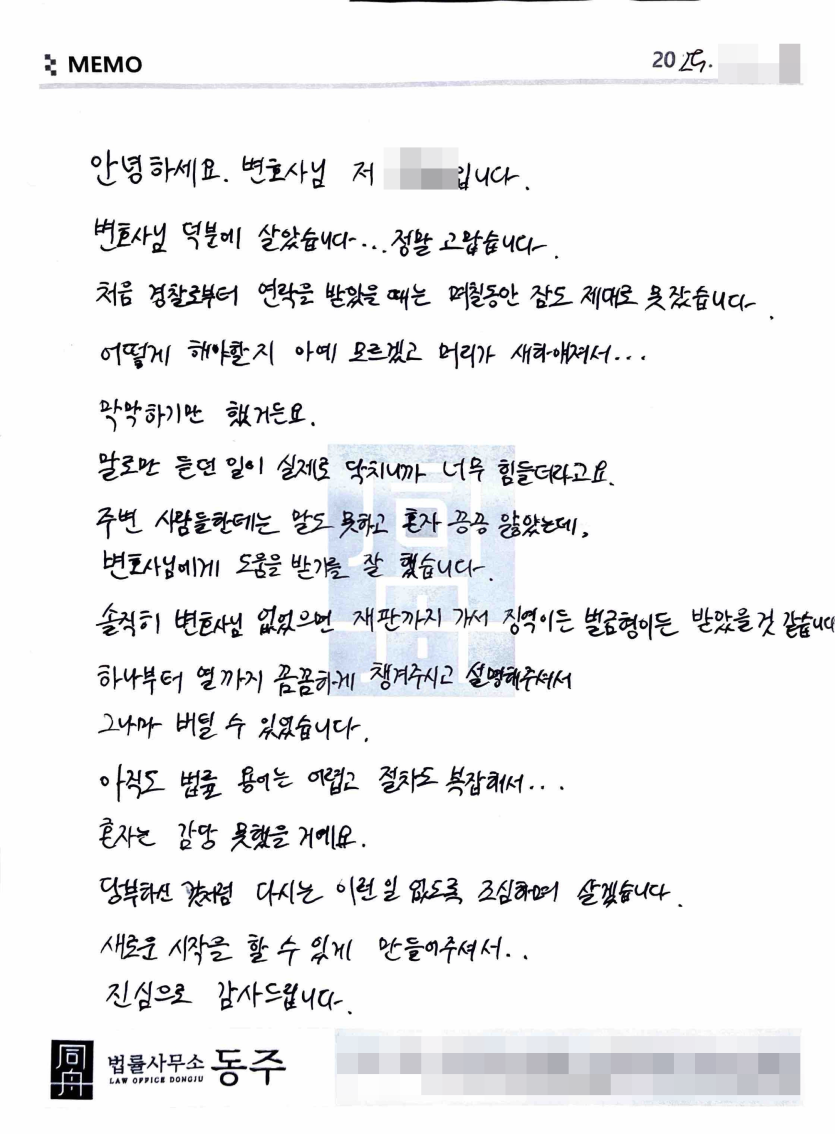 MEMO
2025.
안녕하세요. 변호사님 저 입니다.
변호사님 덕분에 살았습니다... 정말 고맙습니다.
처음 경찰로부터 연락을 받았을 때는 며칠동안 잠도 제대로 못잤습니다.
어떻게 해야할지 아예 모르겠고 머리가 새하얘져서...
막막하기만 했거든요.
말로만 듣던 일이 실제로 닥치니까 너무 힘들더라고요.
주변 사람들한테는 말도 못하고 혼자 끙끙 앓았는데,
변호사님에게 도움을 받기를 잘 했습니다.
솔직히 변호사님 없었으면 재판까지 가서 징역이든 벌금형이든 받았을것 같습니다
하나부터 열까지 꼼꼼하게 챙겨주시고 설명해주셔서
그나마 버틸 수 있었습니다.
아직도 법률 용어는 어렵고 절차도 복잡해서...
혼자는 감당 못했을 거예요.
당부하신 것처럼 다시는 이런 일 없도록 조심하며 살겠습니다.
새로운 시작을 할 수 있게 만들어주셔서..
진심으로 감사드립니다.
同舟
법률사무소 동주
LAW OFFICE DONGJU